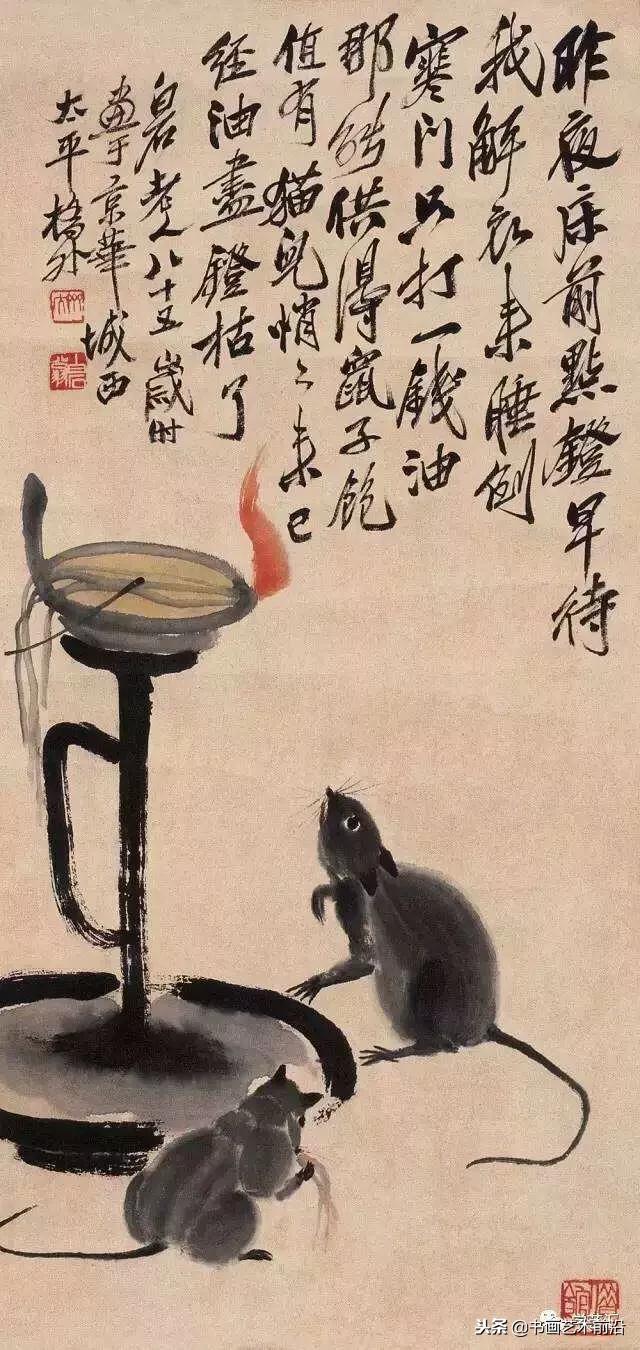 昨夜床前點鐙早待
我解衣来睡倒
寒门只打一錢油
那能供得鼠子飽
值有猫兒悄々来已
經油盡鐙枯了
白石老人八十五歲时
畫于京華城西
太平橋外
头条 @书画艺术前沿